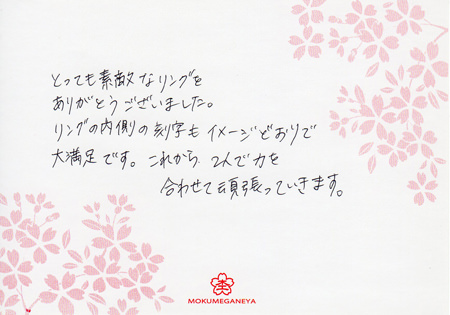 とっても素敵なリングを
ありがとうございました。
リングの内側の刻字もイメージどおりで
大満足です。これから 2人で力を
合わせて頑張っていきます。
MOKUMEGANEYA